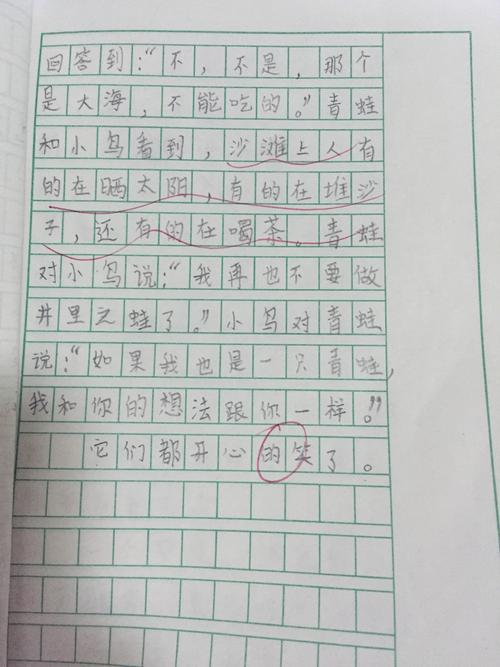 回答到:“不,不是,那个
是大海,不能吃的。”青蛙
和小鸟看到,沙滩上人有
的在晒太阳,有的在堆沙
子,还有的在喝茶。青蛙
对小鸟说:“我再也不要做
井里之蛙了。”小鸟对青蛙
说:“如果我也是一只青蛙,
我和你的想法跟你一样。”
它们都开心的笑了。